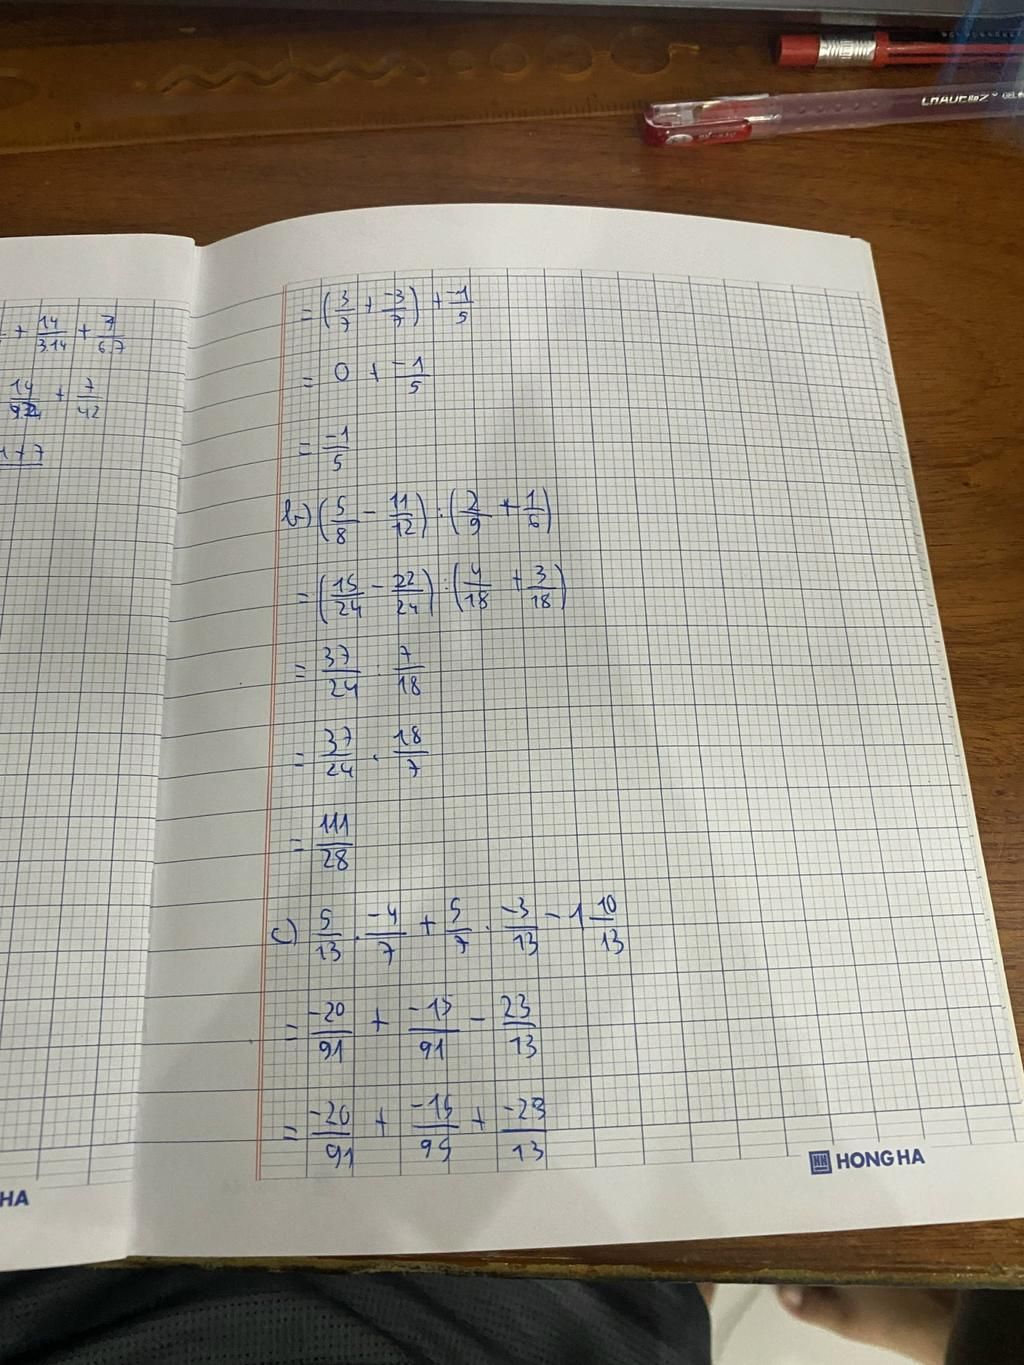 + 14/3.14 + 7/6.7
14/924 + 7/42
1+7
= (3/7 + -3/7) + -1/5
= 0 + -1/5
= -1/5
b) (5/8 - 11/12) : (2/9 + 1/6)
= (15/24 - 22/24) : (4/18 + 3/18)
= 37/24 : 7/18
= 37/24 . 18/7
= 111/28
c) 5/13 . -4/7 + 5/7 . -3/13 - 1 10/13
= -20/91 + -15/91 - 23/13
= -20/91 + -15/95 + -23/13
HONG HA
HA